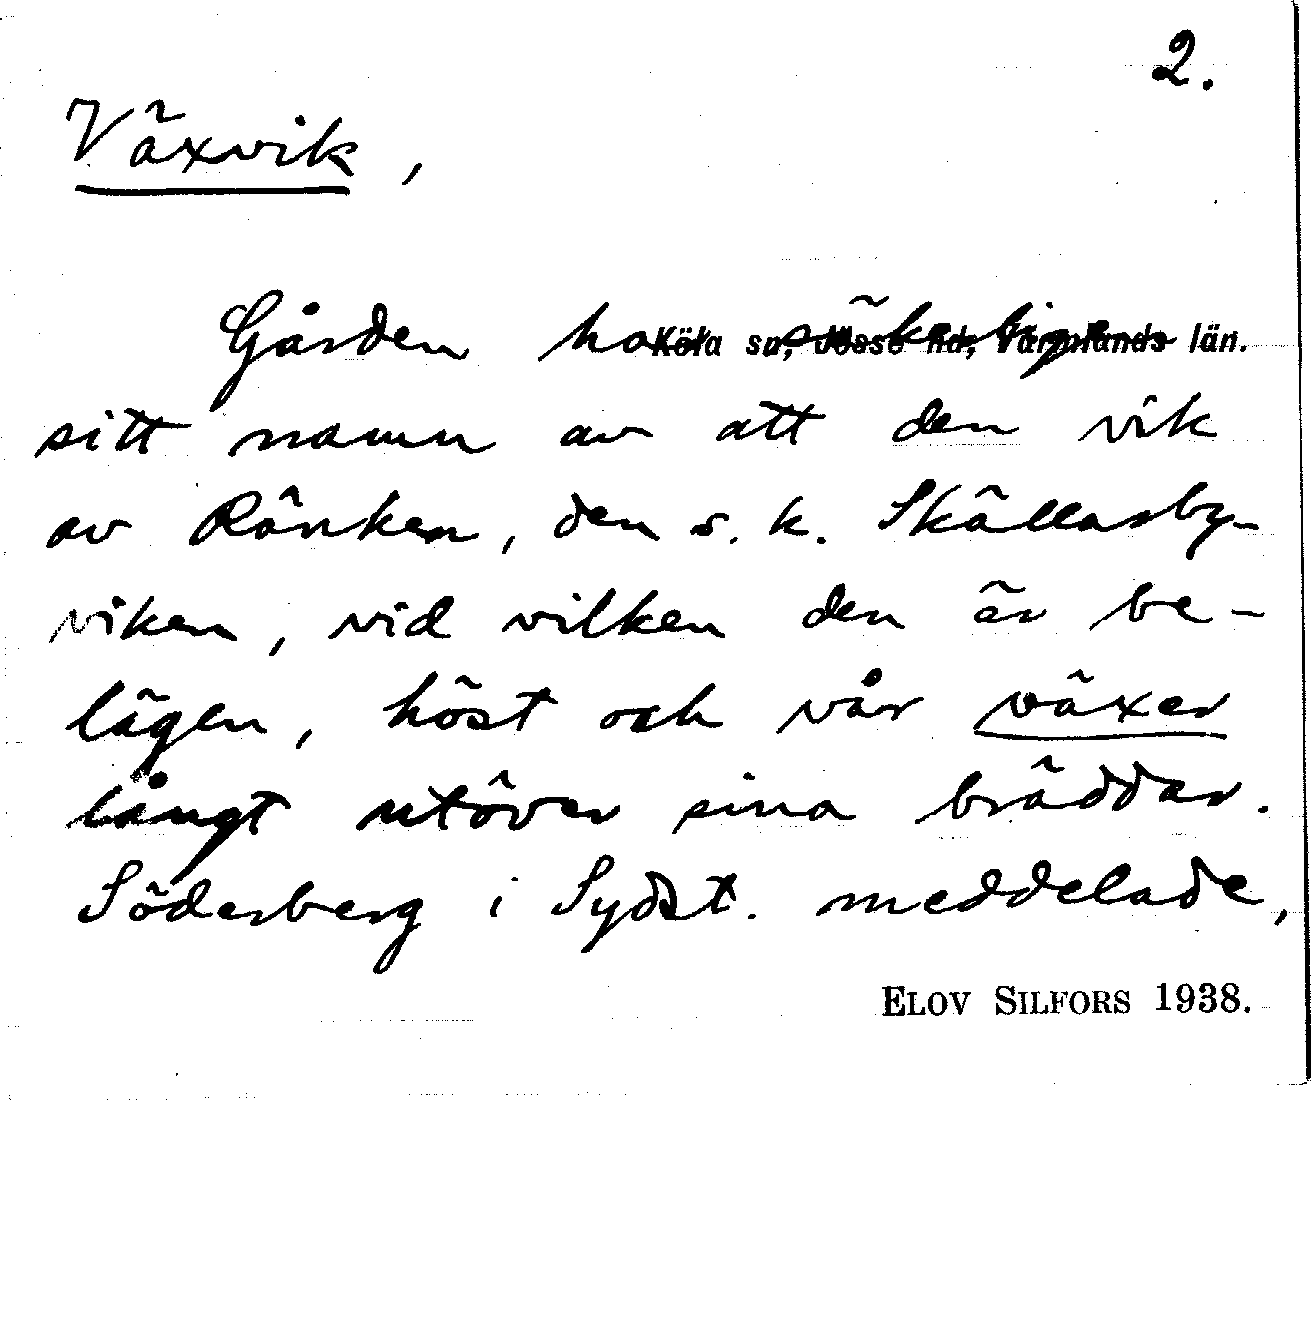 2.
Växvik,
Gården har säkerligen
Köla sn, Jösse hd, Värmlands län.
sitt namn av att den vik
av Ränken, den s. k. Skällarby-
viken, vid vilken den är be-
lägen, höst och vår växer
långt utöver sina bräddar.
Söderberg i Sydst. meddelade,
ELOV SILFORS 1938.